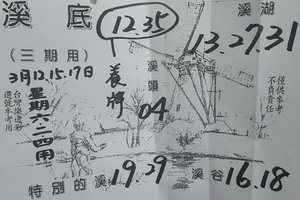 溪底
12.35
溪湖
13.27.31
(三期用)
3月12.15.17日
星期六二四用
台灣樂透彩
選號參考用
養牌
溪頭
04
僅供參考
不負責任
特別的溪
19.29
溪谷
16.18